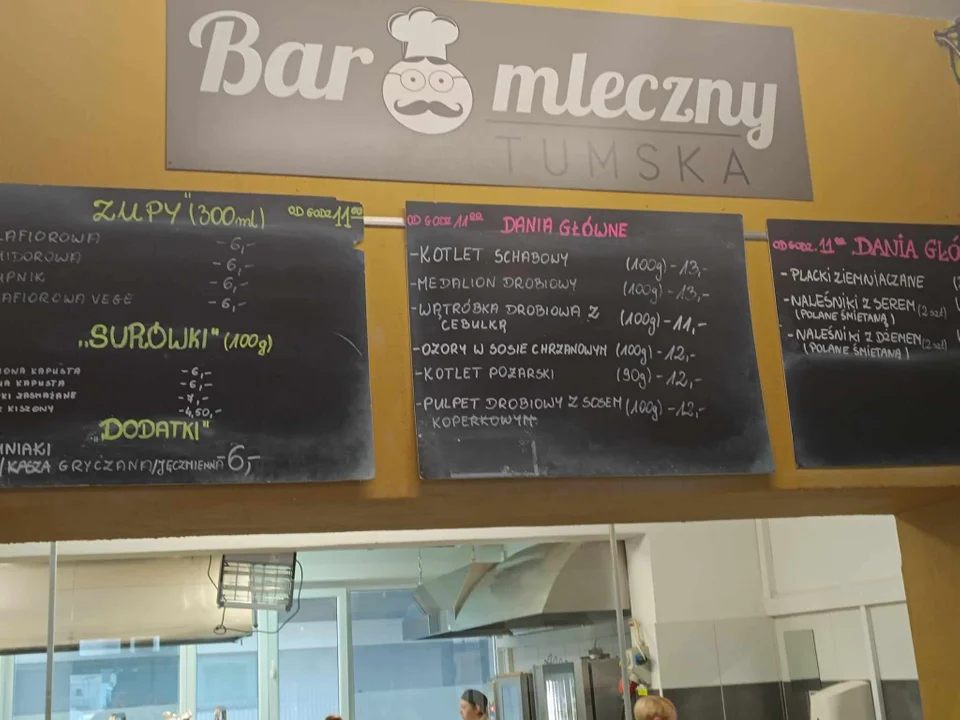 Bar mleczny
TUMSKA
"ZUPY" (300ml) OD GODZ 11⁰⁰
LAFIOROWA -6,-
MIDOROWA -6,-
UPNIK -6,-
LAFIOROWA VEGE -6,-
"SURÓWKI" (100g)
ONA KAPUSTA -6,-
NA KAPUSTA -6,-
KI ZASMAŻANE -7,-
KISZONY -4,50,-
"DODATKI"
NIAKI
/KASZA GRYCZANA/JĘCZMIENNA -6,-
OD GODZ 11⁰⁰ DANIA GŁÓWNE
-KOTLET SCHABOWY (100g) -13,-
-MEDALION DROBIOWY (100g) -13,-
-WĄTRÓBKA DROBIOWA Z (100g) -11,-
CEBULKĄ
-OZORY W SOSIE CHRZANOWYM (100g) -12,-
-KOTLET POŻARSKI (90g) -12,-
-PULPET DROBIOWY Z SOSEM (100g) -12,-
KOPERKOWYM
OD GODZ. 11⁰⁰ DANIA GŁÓ
-PLACKI ZIEMNIACZANE
-NALEŚNIKI Z SEREM (2 szt)
(POLANE ŚMIETANĄ)
-NALEŚNIKI Z DŻEMEM (2 szt)
(POLANE ŚMIETANĄ)